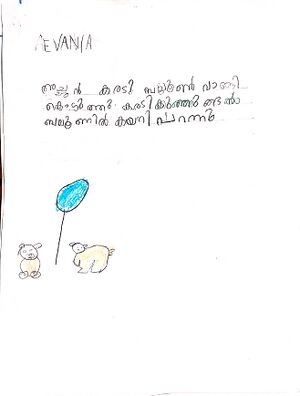 DEVANIA
അച്ഛൻ കരടി ബലൂൺ വാങ്ങി
കൊടുത്തു കരടികുഞ്ഞുങ്ങൾ
ബലൂണിൽ കയറി പറന്നു